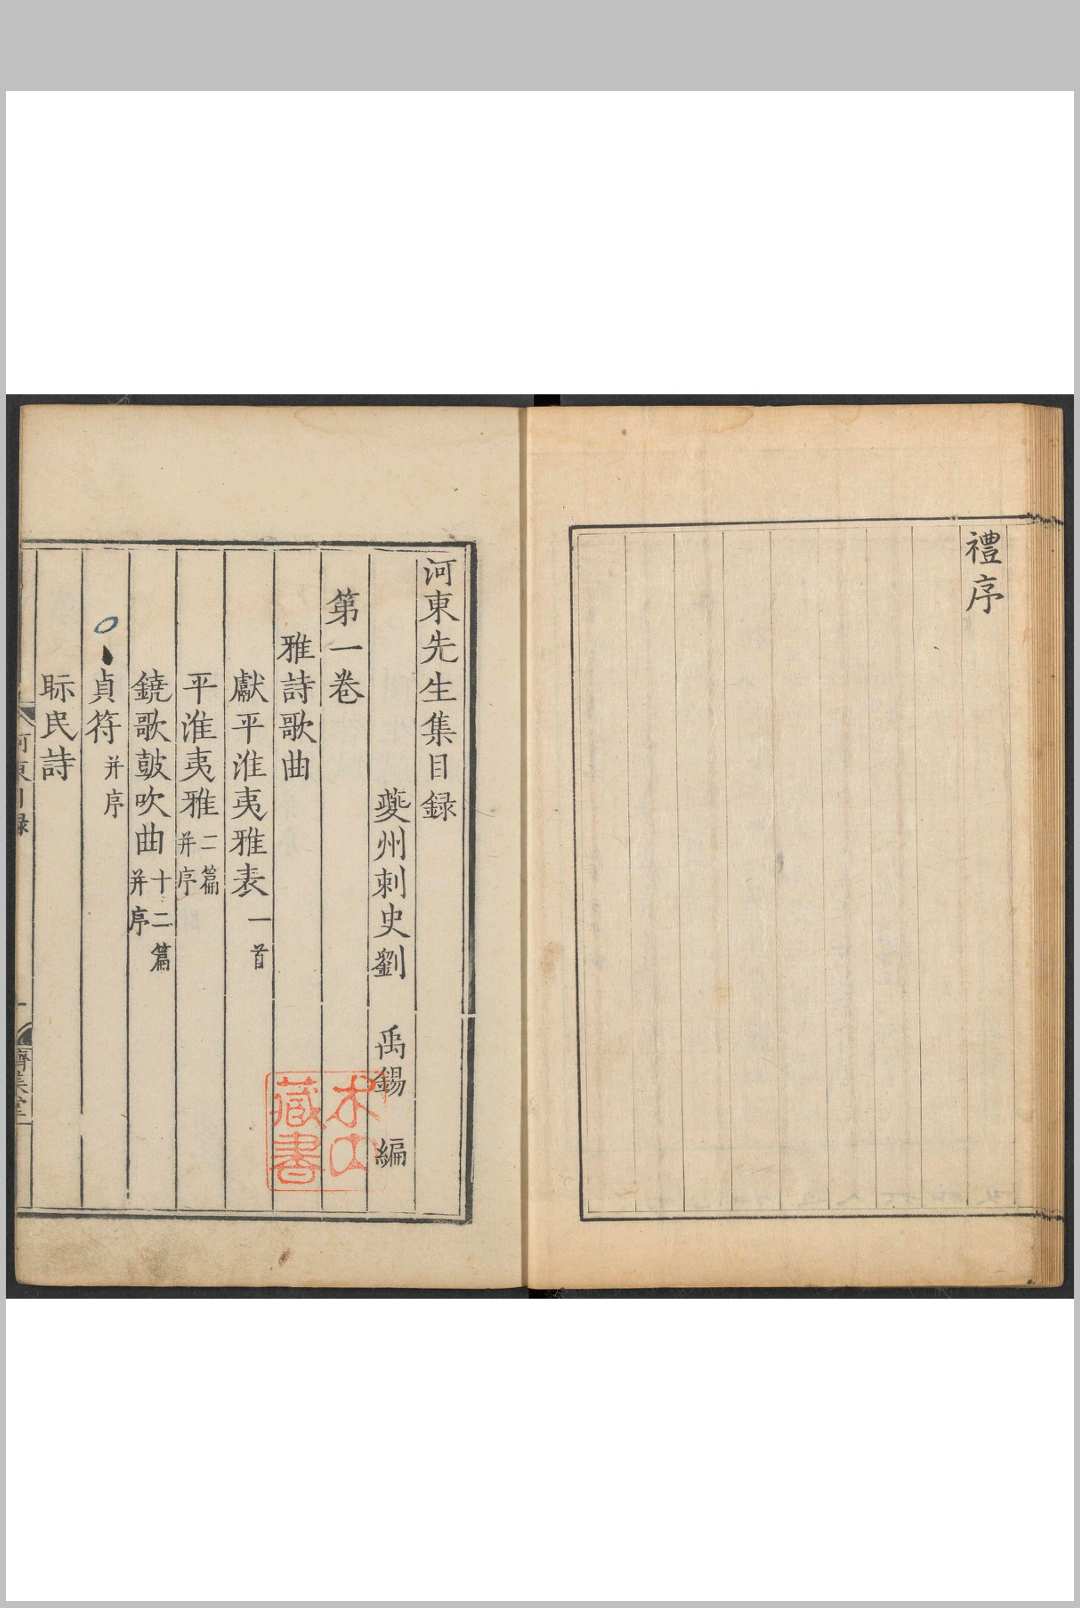 禮序
河東先生集目録
夔州刺史劉 禹錫 編
第一卷
雅詩歌曲
獻平淮夷雅表一首
平淮夷雅二篇并序
鐃歌鼓吹曲十二篇并序
貞符并序
眎民詩
藏書